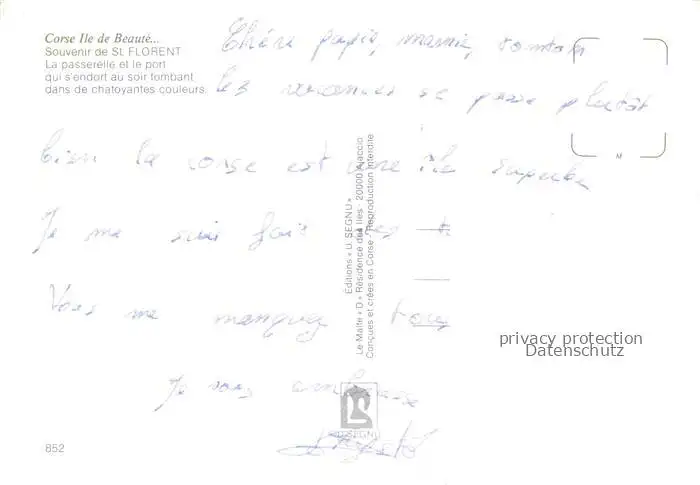 Corse Ile de Beauté...
Souvenir de St. FLORENT
La passerelle et le port
qui s'endort au soir tombant
dans de chatoyantes couleurs.
Chéri papie, mamie, tonton
les vacances se passe plutôt
bien la corse est une île superbe
Je me suis fait des
Vous me manquez tous
Je vous embrasse
Editions « U. SEGNU »
Le Malte « D » Résidence des Iles - 20000 Ajaccio
Conçues et créées en Corse - Reproduction interdite
U. SEGNU
852
privacy protection
Datenschutz